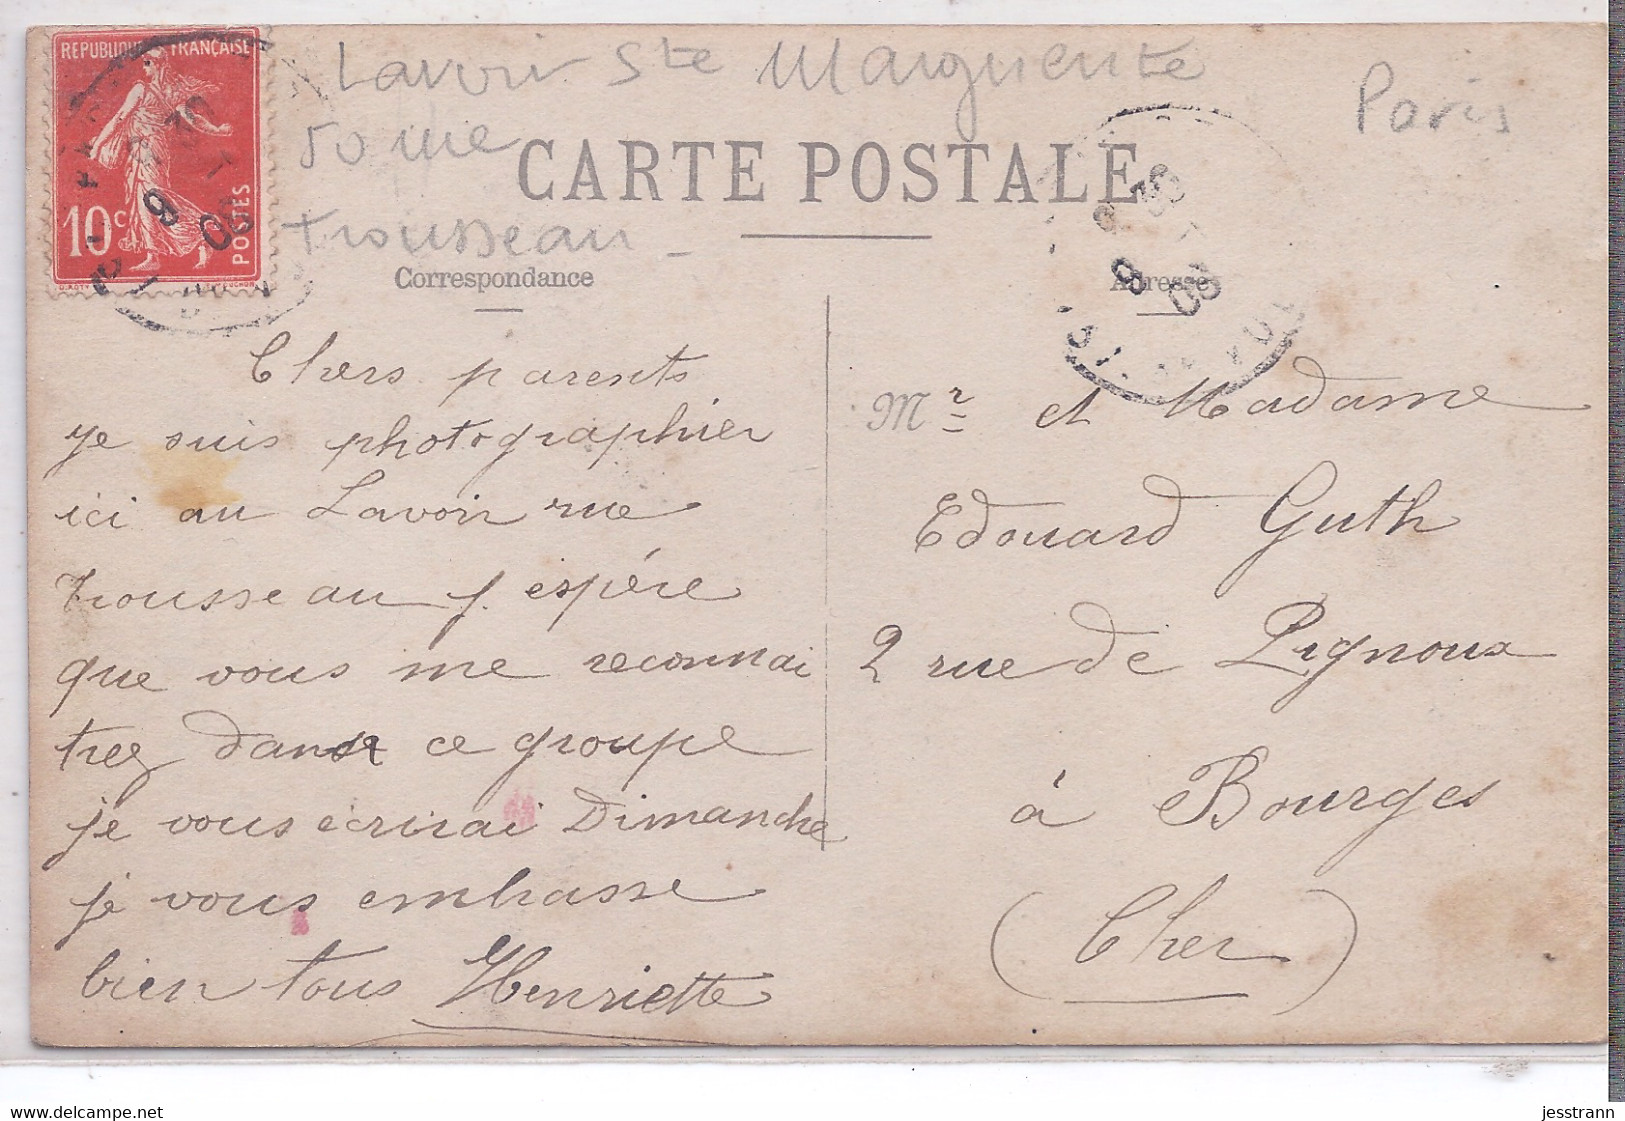 REPUBLIQUE FRANÇAISE
10c
POSTES
Lavoir Ste Marguerite
Paris
50 rue
trousseau
CARTE POSTALE
Correspondance
Adresse
Chers parents
je suis photographier
ici au Lavoir rue
trousseau j. espére
que vous me reconnai
trez dans ce groupe
je vous écrirai Dimanche
je vous embrasse
bien tous Henriette
Mr et Madame
Edouard Guth
2 rue de Pignoux
à Bourges
(Cher)
www.delcampe.net
jesstrann